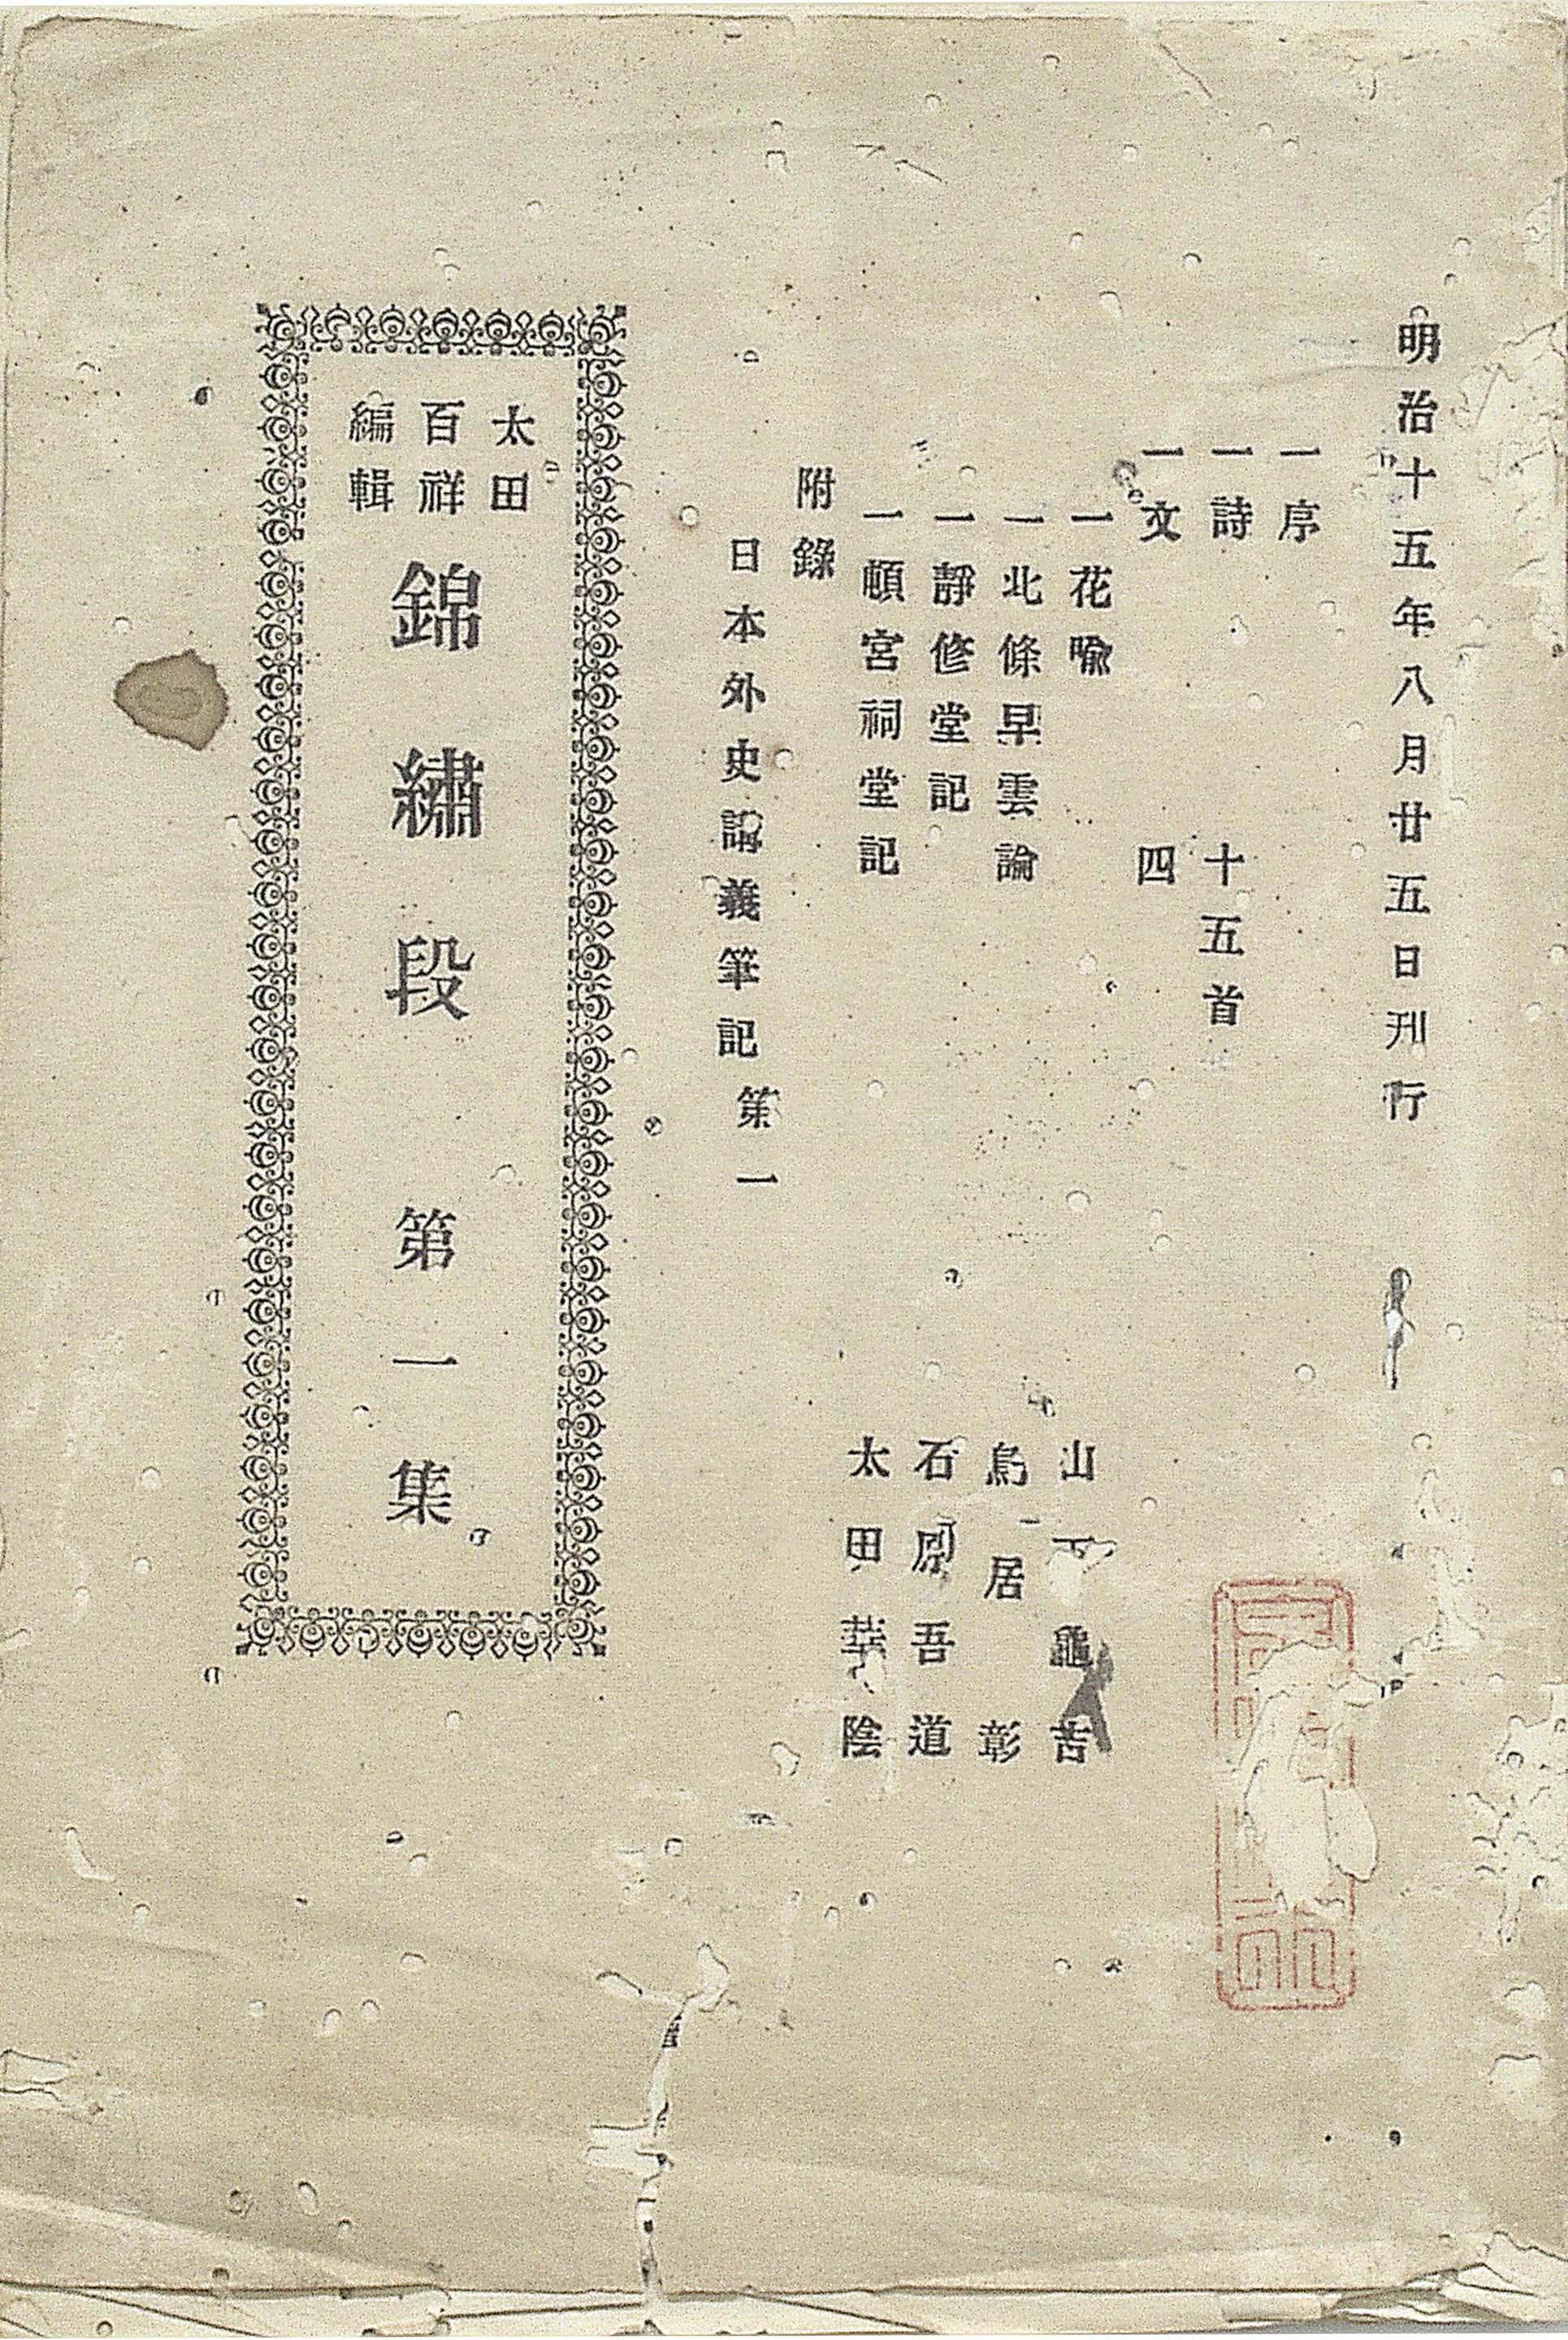 明治十五年八月廿五日刊行
一序
一詩 十五首
一文 四
一花喩 山下龜吉
一北條早雲論 鳥居彰
一靜修堂記 石原吾道
一頓宮祠堂記 太田華陰
附錄
日本外史講義筆記第一
太田
百祥
編輯
錦繡段 第一集